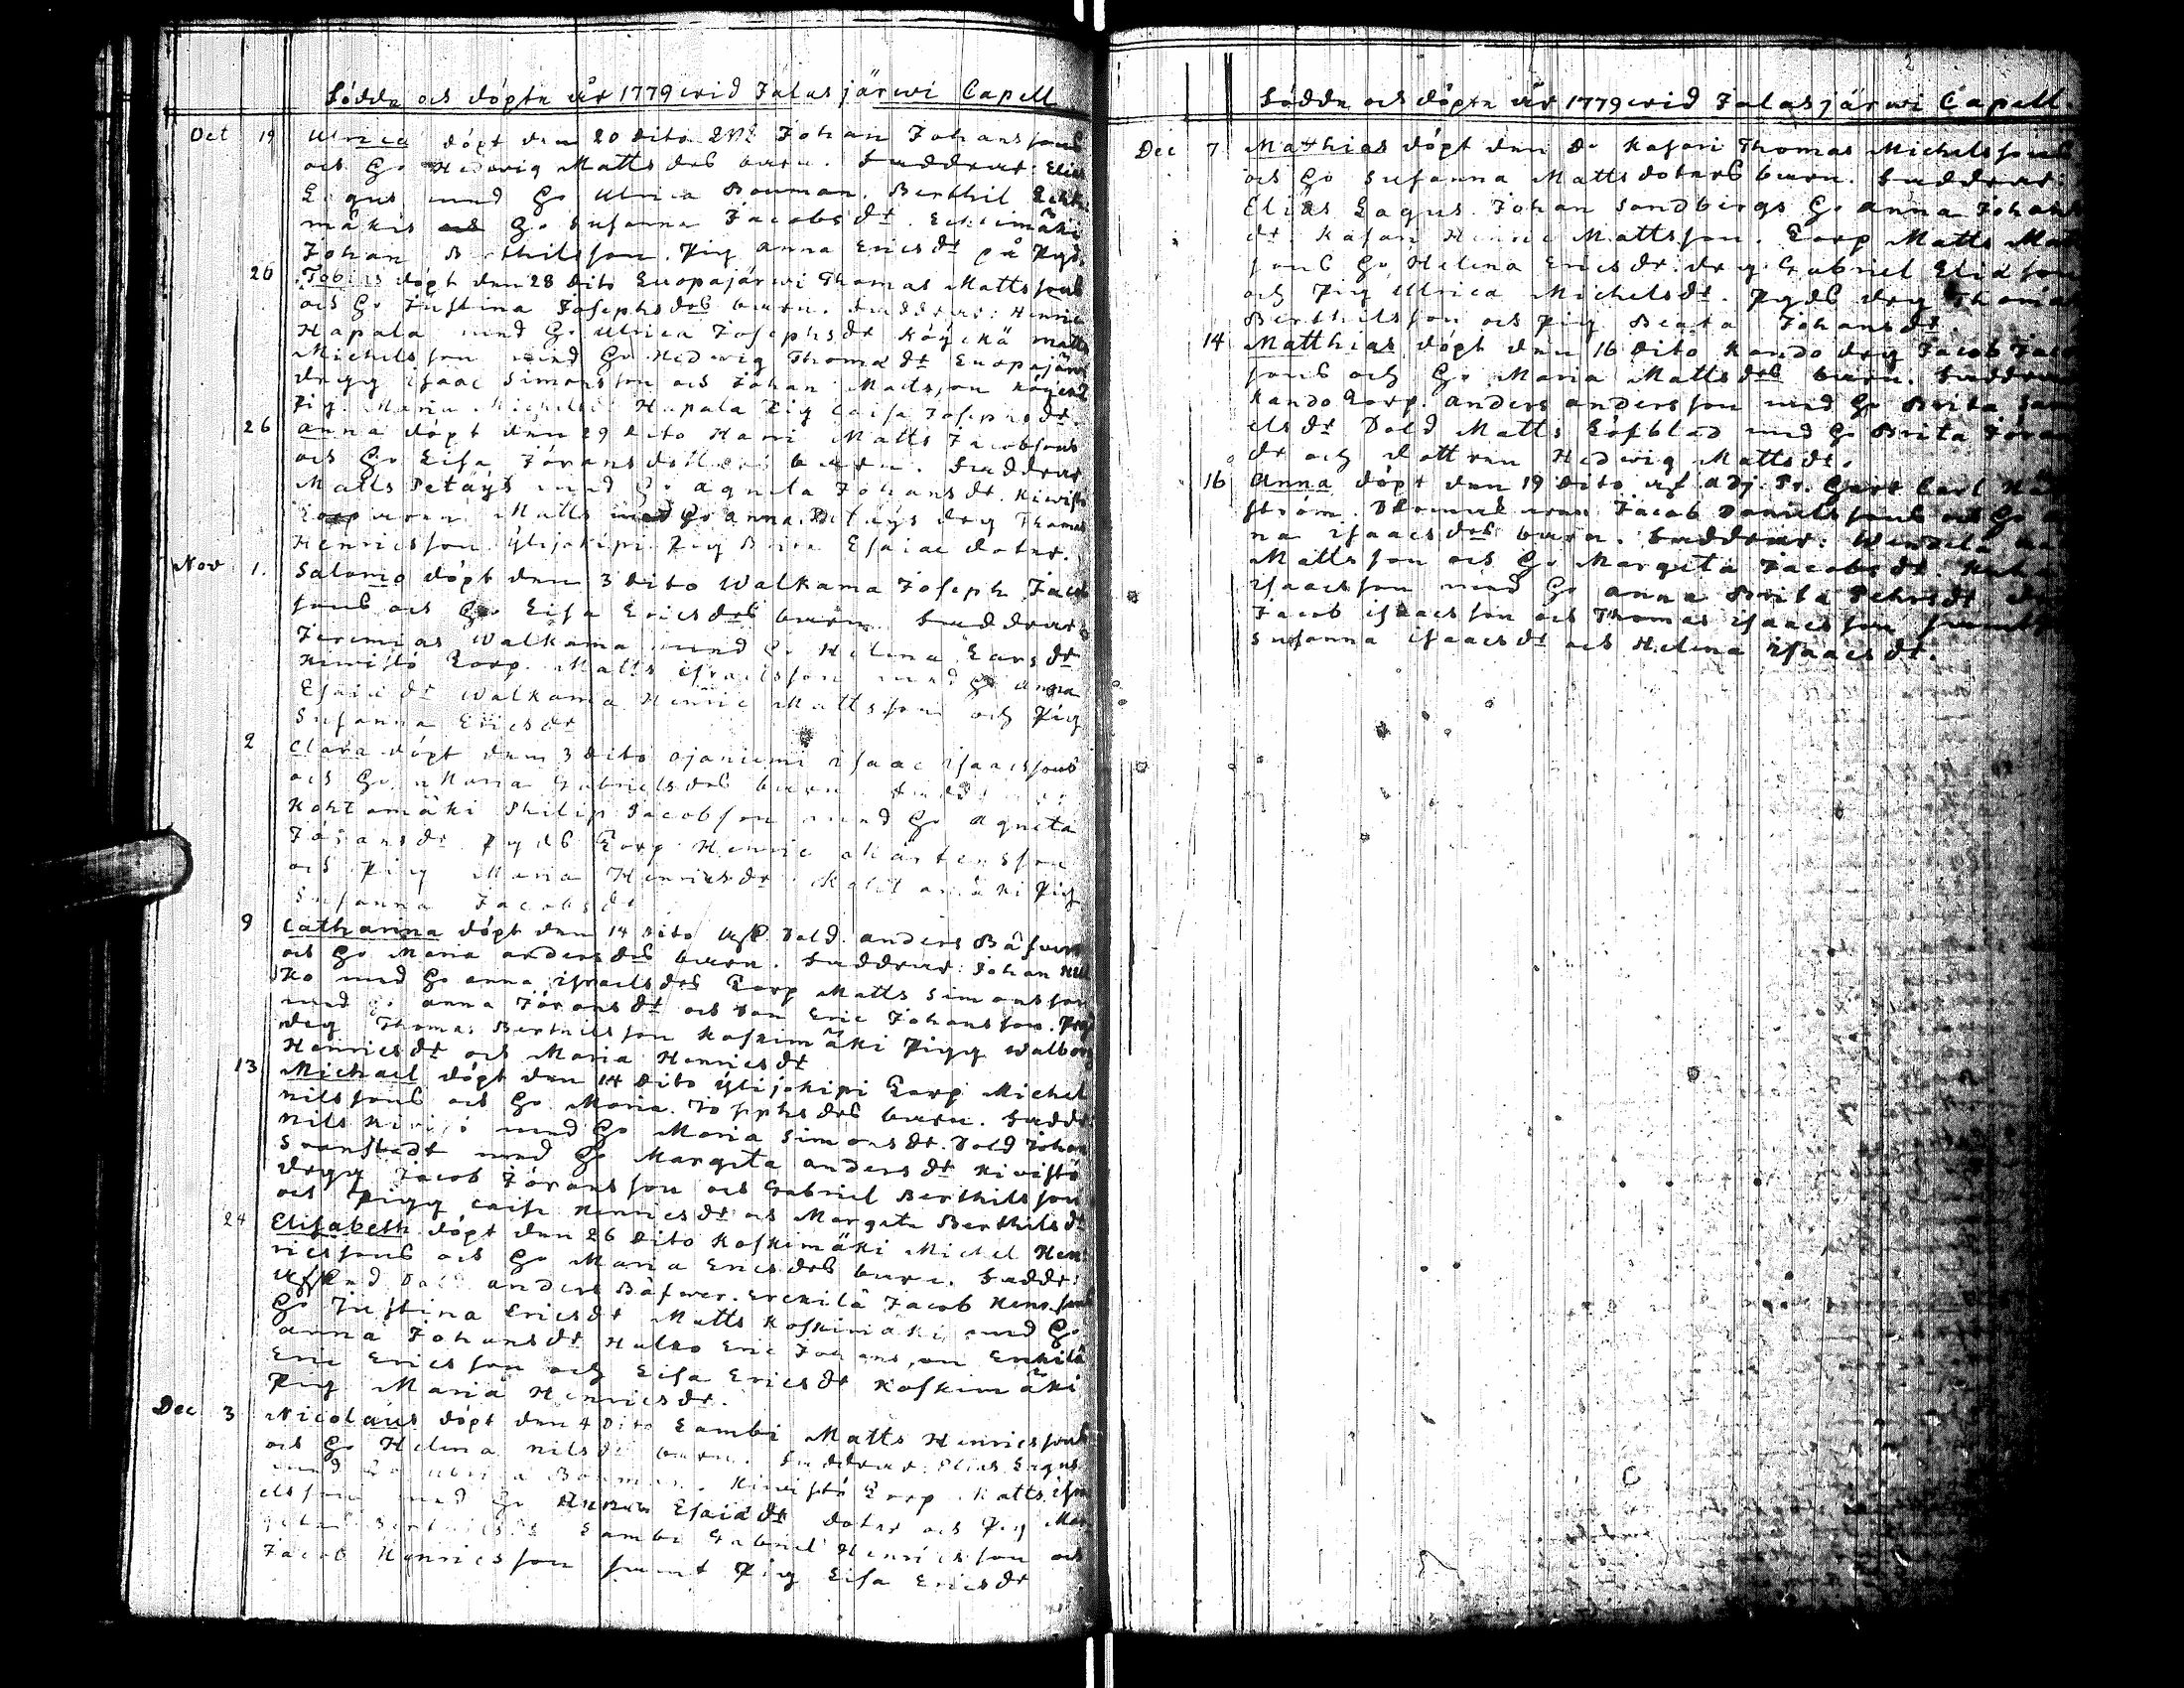 Födda och döpta år 1779 wid Jalasjärwi Capell
Oct 19 Ulrica döpt den 20 dito Johan Johanssons
och Ho Hedwig Matts drs barn. Faddrar: Elias
Lagus med Ho Ulrica Bouman. Berthil
mäkis Ho Susanna Jacobs dr.
Johan Berthilsson. Pig Anna Erics dr på
26 Tobias döpt den 28 dito Luopajärwi Thomas Mattssons
och Ho Justina Josephs drs barn. Faddrar: Henric
Hapala med Ho Ulrica Josephs dr Köykä Matts
Michelsson med Ho Hedwig Thomæ dr Luopajärwi
drgg Isaac Simonsson och Johan Mattsson
Pig. Maria Hapala Pig Caisa Josephs dr.
26 Anna döpt den 29 dito Harri Matts Jacobssons
och Ho Lisa Jörans dotters barn. Faddrar
Matts Petäys med Ho Agneta Johans dr. Kiwistö
Matts med Ho Anna. Petäys drg Thomas
Henricsson. Ylijokipi Pig Brita Esaiæ doter.
Nov 1. Salomo döpt den 3 dito Walkama Joseph Jacob
sons och Ho Lisa Erics drs barn. Faddrar:
Jeremias Walkama med Ho Helena Lars dr
Kiwistö Torp. Matts Israelsson med Ho Anna
Esaiæ dr Walkama Henric Mattsson och Pig
Susanna Erics dr
2 Clara döpt den 3 dito Ojaniemi Isaac Isaacssons
och Ho Maria Gabriels drs barn
Kohtamäki Philip Jacobsson med Ho Agneta
Jörans dr. Torp Henric Mårtensson
och Pig Maria Henrics dr. Pig
Susanna Jacobs dr
9 Catharina döpt den 14 dito Afsk. Sold. Anders Bäfwer
och Ho Maria Anders drs barn. Faddrar: Johan
ko med Ho Anna Israels drs Torp Matts Simonsson
med Ho Anna Jörans dr och son Eric Johansson.
drg Thomas Berthilsson Koskimäki Pigg Walborg
Henrics dr och Maria Henrics dr
13 Michael döpt den 14 dito Ylijokipi Torp Michel
Nilssons och Ho Maria Josephs drs barn. Faddr:
Nils Kiwistö med Ho Maria Simons dr. Sold Johan
Swanstedt med Ho Margeta Anders dr Kiwistö
drgg Jacob Jöransson och Gabriel Berthilsson
och Pigg Caisa Henrics dr och Margeta Berthils dr
24 Elisabeth döpt den 26 dito Koskimäki Michel Hen:
ricssons och Ho Maria Erics drs barn. Faddr:
Sold Anders Bäfwer. Erckilä Jacob
Ho Justina Erics dr Matts Koskimäki med Ho
Anna Johans dr Eric Johansson Erckilä
Eric Ericsson och Lisa Erics dr Koskimäki
Pig Maria Henrics dr.
Dec 3 Nicolaus döpt den 4 dito Lambi Matts Henricssons
och Ho Helena Nils drs barn. Faddrar: Elias Lagus
med Ho Ulrica Bouman. Kiwistö Torp Matts Isra
elsson med Ho Esaiæ dr doter och Pig Mar
geta Berthils dr Lambi Gabriel Henricsson och
Jacob Henricsson samt Pig Lisa Erics dr
2
Födda och döpta år 1779 wid Jalasjärwi Capell.
Dec 7 Mathias döpt den Kasari Thomas Michelssons
och Ho Susanna Matts doters barn. Faddrar:
Elias Lagus. Johan Sandbergs Ho Anna Johans
dr. Kasari Henric Mattsson. Torp Matts Matt
sons Ho Helena Erics dr. drg Gabriel Eliæson
och Pig Ulrica Michels dr. drg Thomas
Berthilsson och Pig Beata Johans dr.
14 Matthias döpt den 16 dito Kando drg Jacob Jacob
sons och Ho Maria Matts drs barn. Faddrar
Kando Torp. Anders Andersson med Ho Brita Sam
els dr Sold Matts Löfblad med Ho Brita Jöran
dr och dottren Hedwig Matts dr.
16 Anna döpt den 19 dito af Adj. Carl
ström. Jacob Danielssons och Ho
na Isaacs drs barn. Faddrar: Wendelä
Mattsson och Ho Margeta Jacobs dr.
Isaacsson med Ho Anna Brita Pehrs dr
Jacob Isaacsson och Thomas Isaacsson samt
Susanna Isaacs dr och Helena Isaacs dr.